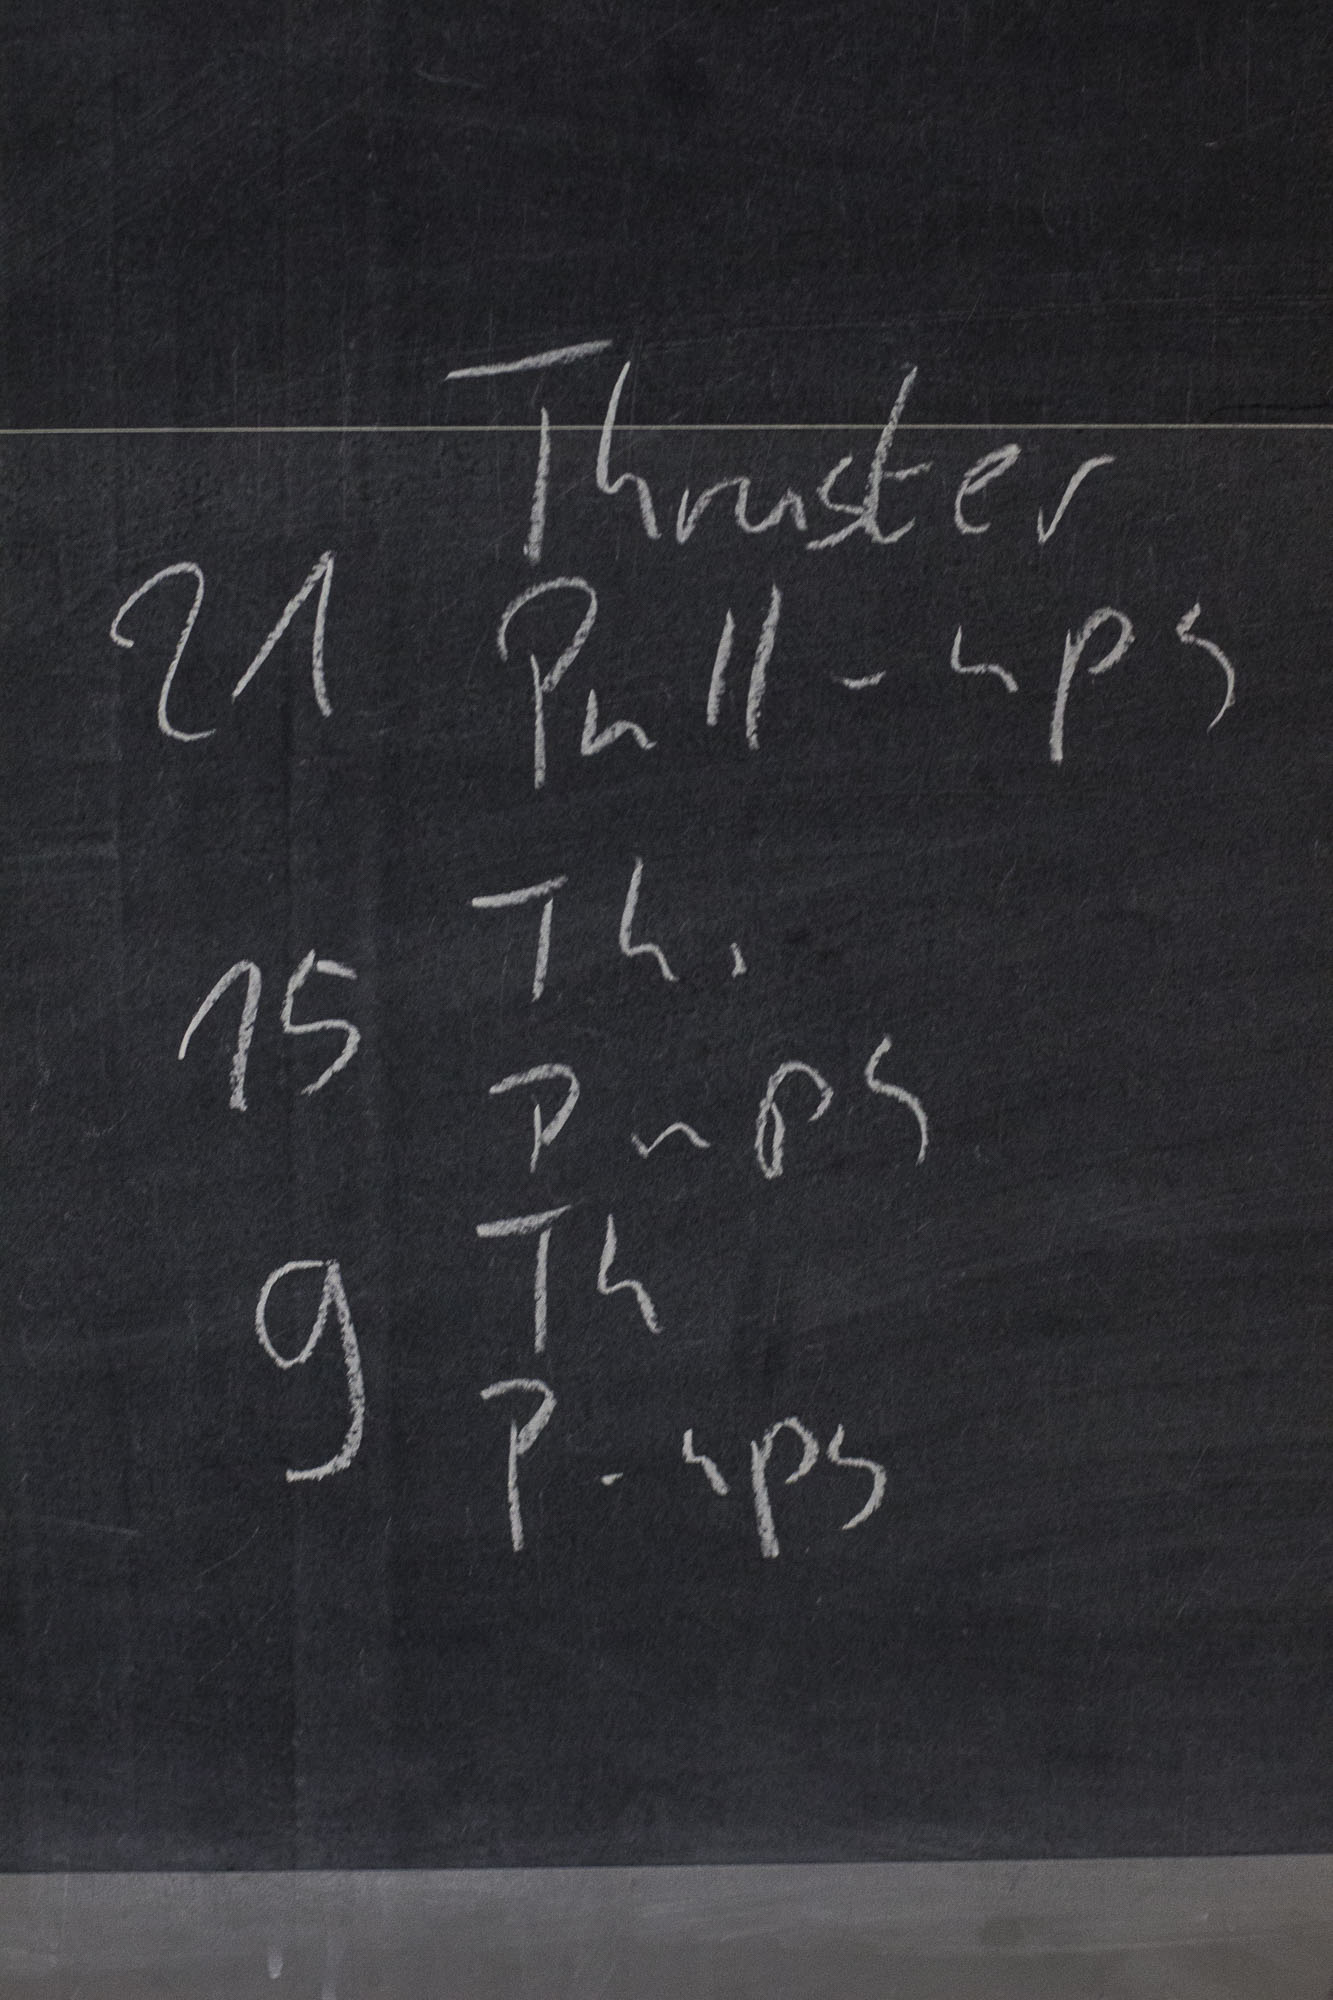 Thruster
21 Pull-ups
Th.
15
P ups
Th
9
P-ups